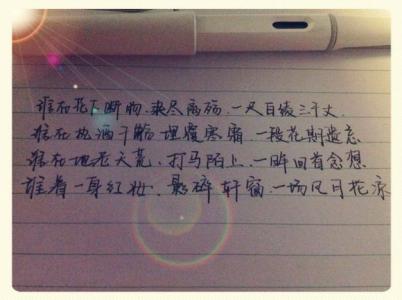 谁在花下断肠,来尽离殇,一尺白绫三千丈.
谁在把酒千觞 埋覆寒霜 一段花期遗忘
谁在地老天荒,打马陌上,一眸回首念想
谁着一身红妆,影碎轩窗,一场风月花凉